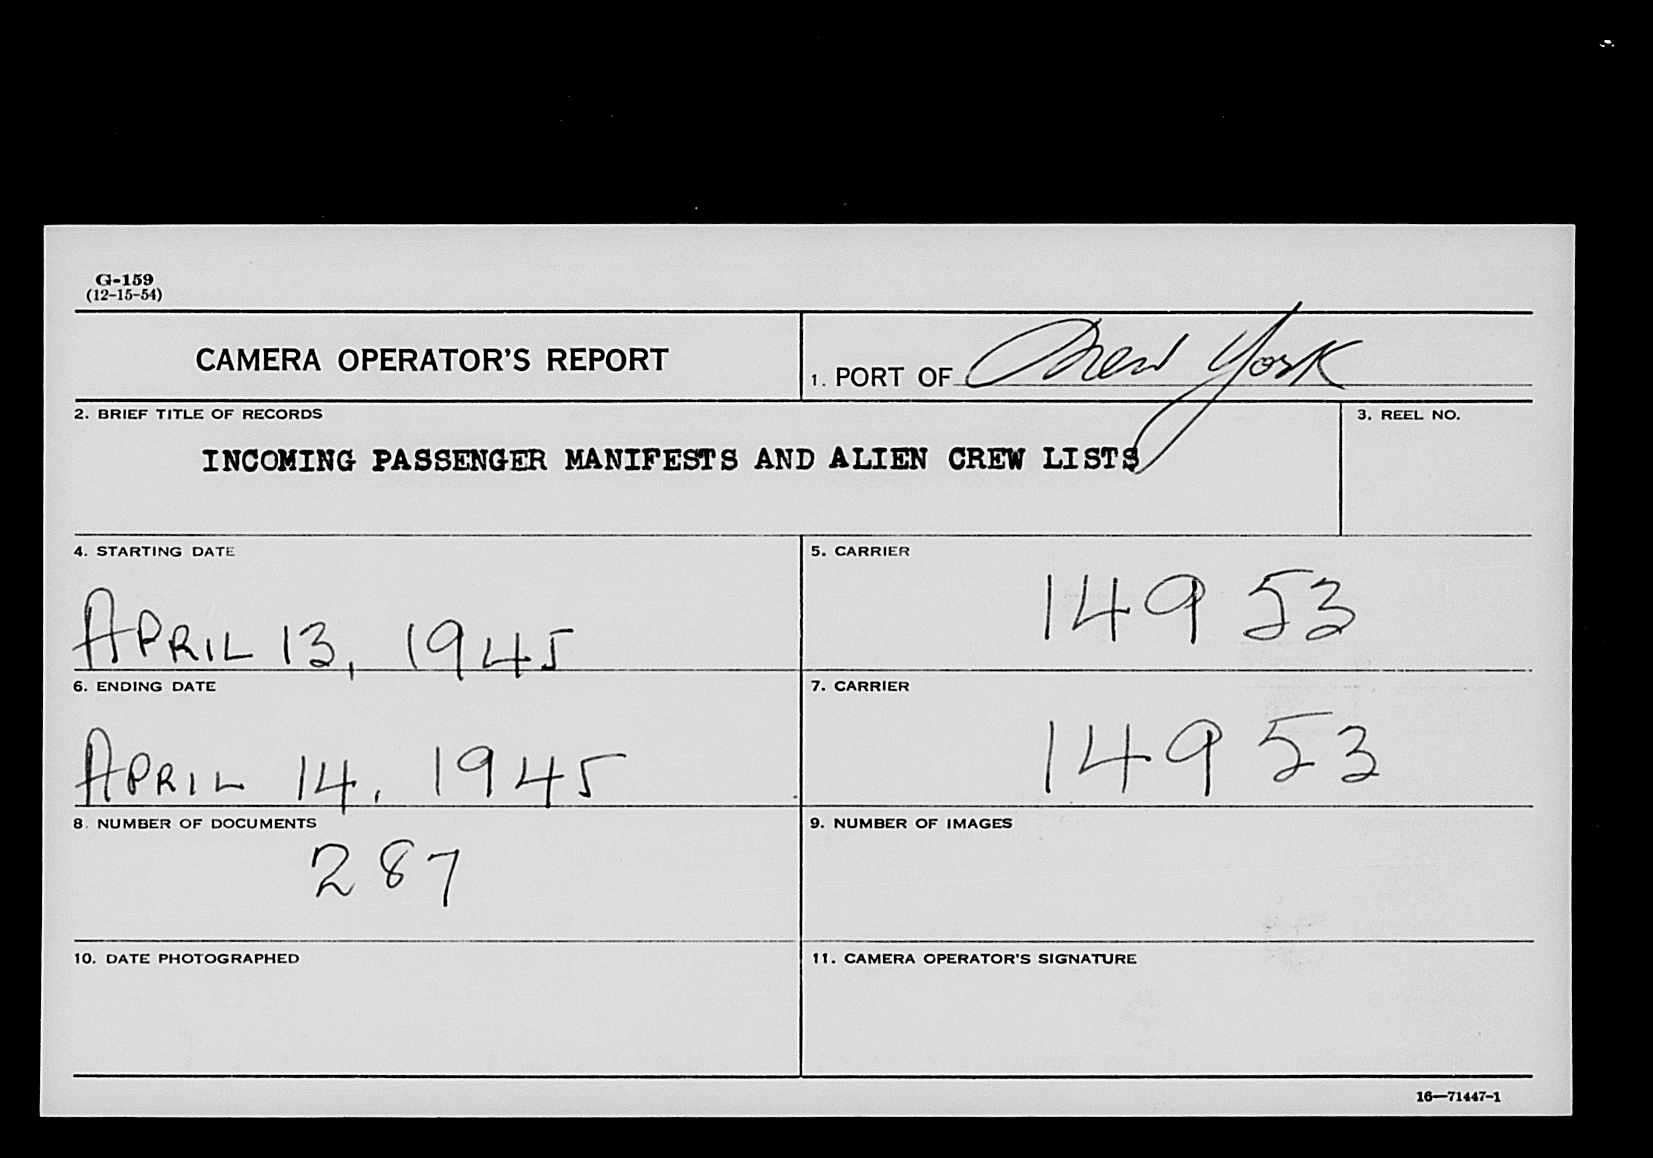 G-159
(12-15-54)
CAMERA OPERATOR'S REPORT
1. PORT OF New York
2. BRIEF TITLE OF RECORDS
3. REEL NO.
INCOMING PASSENGER MANIFESTS AND ALIEN CREW LISTS
4. STARTING DATE
5. CARRIER
APRIL 13, 1945
14953
6. ENDING DATE
7. CARRIER
APRIL 14, 1945
14953
8. NUMBER OF DOCUMENTS
9. NUMBER OF IMAGES
287
10. DATE PHOTOGRAPHED
11. CAMERA OPERATOR'S SIGNATURE
16—71447-1